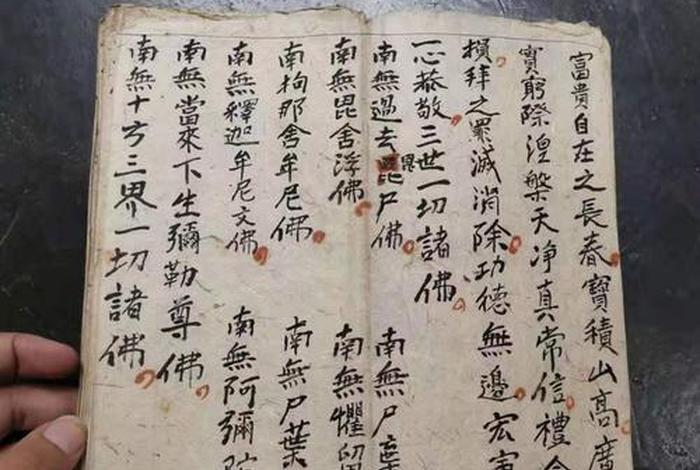 富貴自在之長春寶積山高廣
寳窮際湼槃天净真常信禮念
損拜之罪滅消除功德無邊宏
一心恭敬三世一切諸佛
南無過去毘尸佛 南無尸棄
南無毘舍浮佛 南無懼留
南拘那舍牟尼佛 南無尸葉
南無釋迦牟尼文佛 南無阿彌陀
南無當來下生彌勒尊佛
南無十方三界一切諸佛